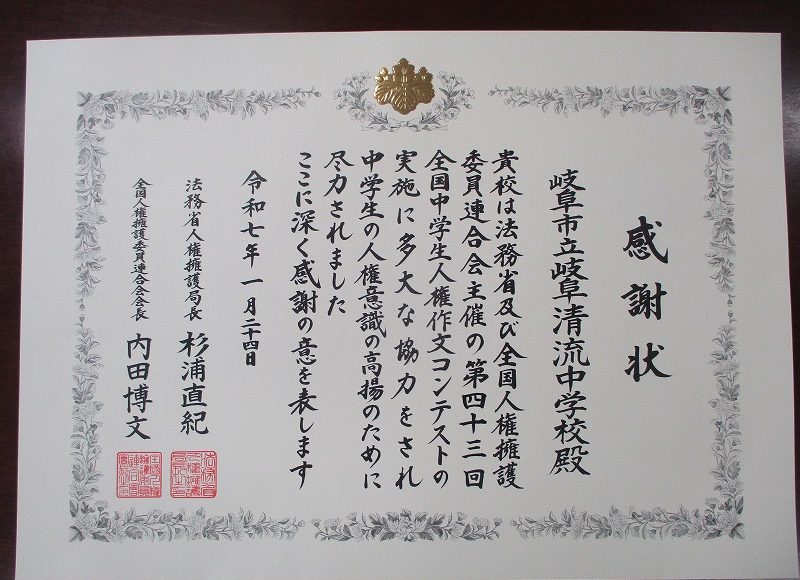 感謝状
岐阜市立岐阜清流中学校殿
貴校は法務省及び全国人権擁護
委員連合会主催の第四十三回
全国中学生人権作文コンテストの
実施に多大な協力をされ
中学生の人権意識の高揚のために
尽力されました
ここに深く感謝の意を表します
令和七年一月二十四日
法務省人権擁護局長 杉浦直紀
全国人権擁護委員連合会会長 内田博文